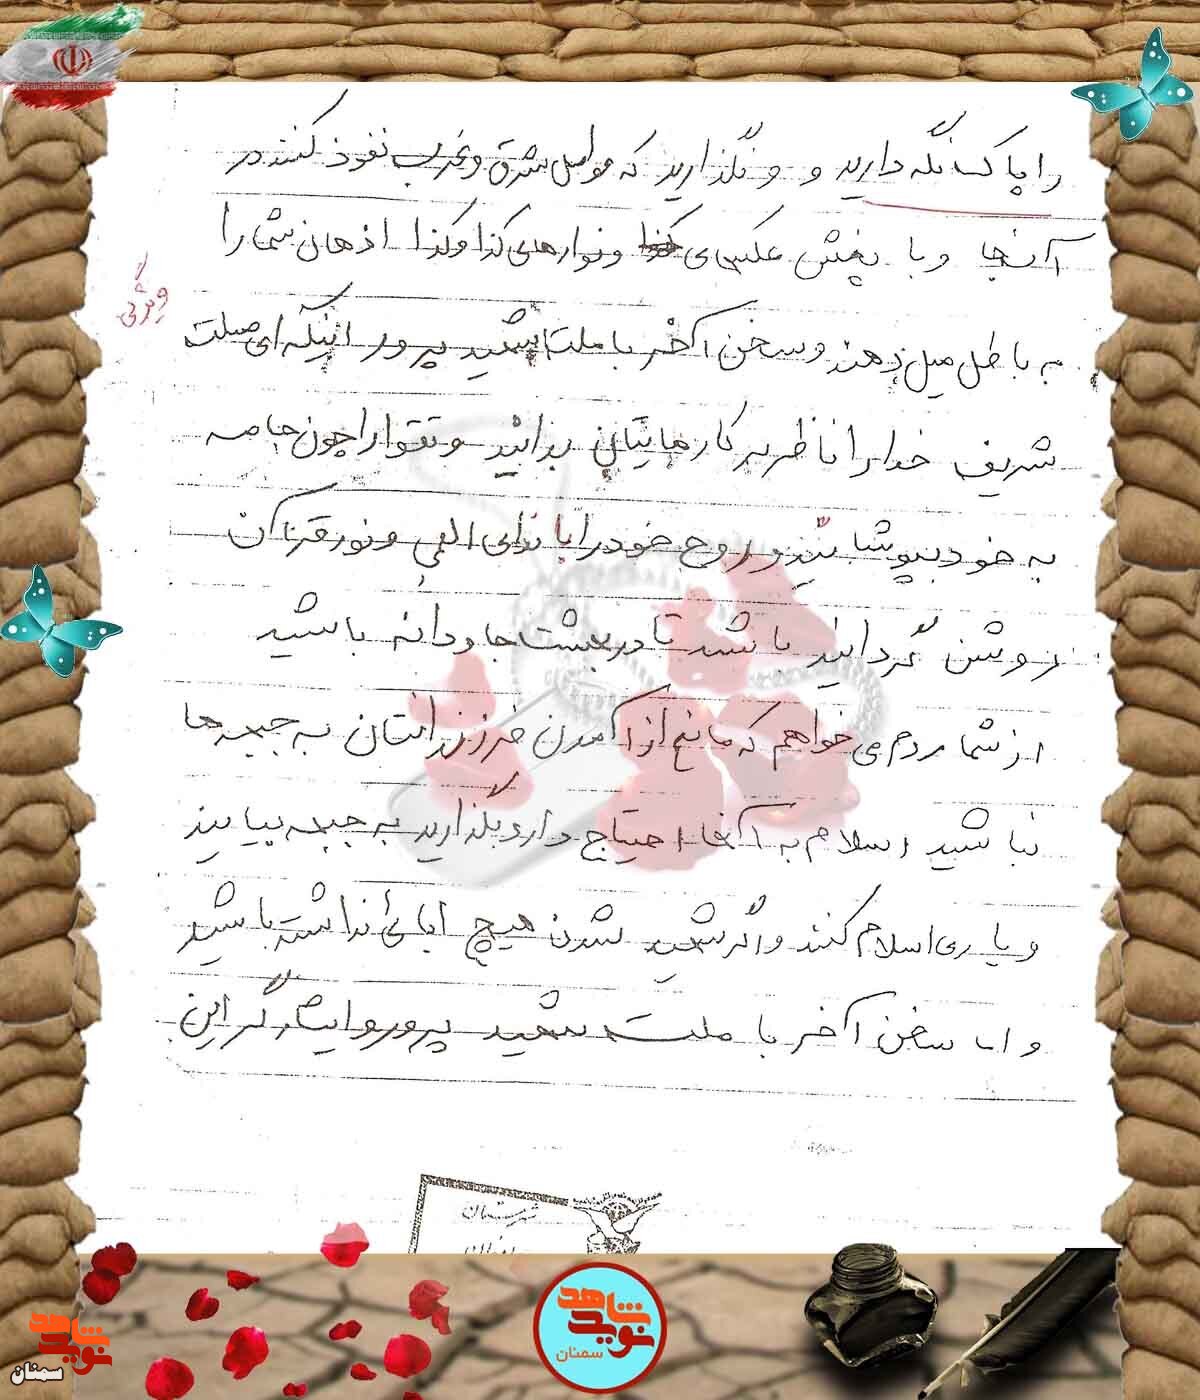 را پاک نگه دارید و و نگذارید که عوامل شرق و غرب نفوذ کنند در
آنجا و با پخش عکسهای و نوارهای کذا و کذا اذهان شما را
به باطل میل دهند و سخن آخر با ملت شهید پرور اینکه ای ملت
شریف خدا را ناظر بر کارهایتان بدانید و تقوا را چون جامه
به خود بپوشانید و روح خود را با ندای الهی و نور قرآن
روشن گردانید باشد تا در بهشت جاودانه باشید
از شما مردم می خواهم که مانع از آمدن فرزندانتان به جبهه ها
نباشید اسلام به آنها احتیاج دارد بگذارید به جبهه بیایند
و یاری اسلام کنند و اگر شهید شدن هیچ ابائی نداشته باشید
و اما سخن آخر با ملت شهید پرور و ایثارگر این
شهرستان
نوید شاهد
سمنان
نوید شاهد
سمنان